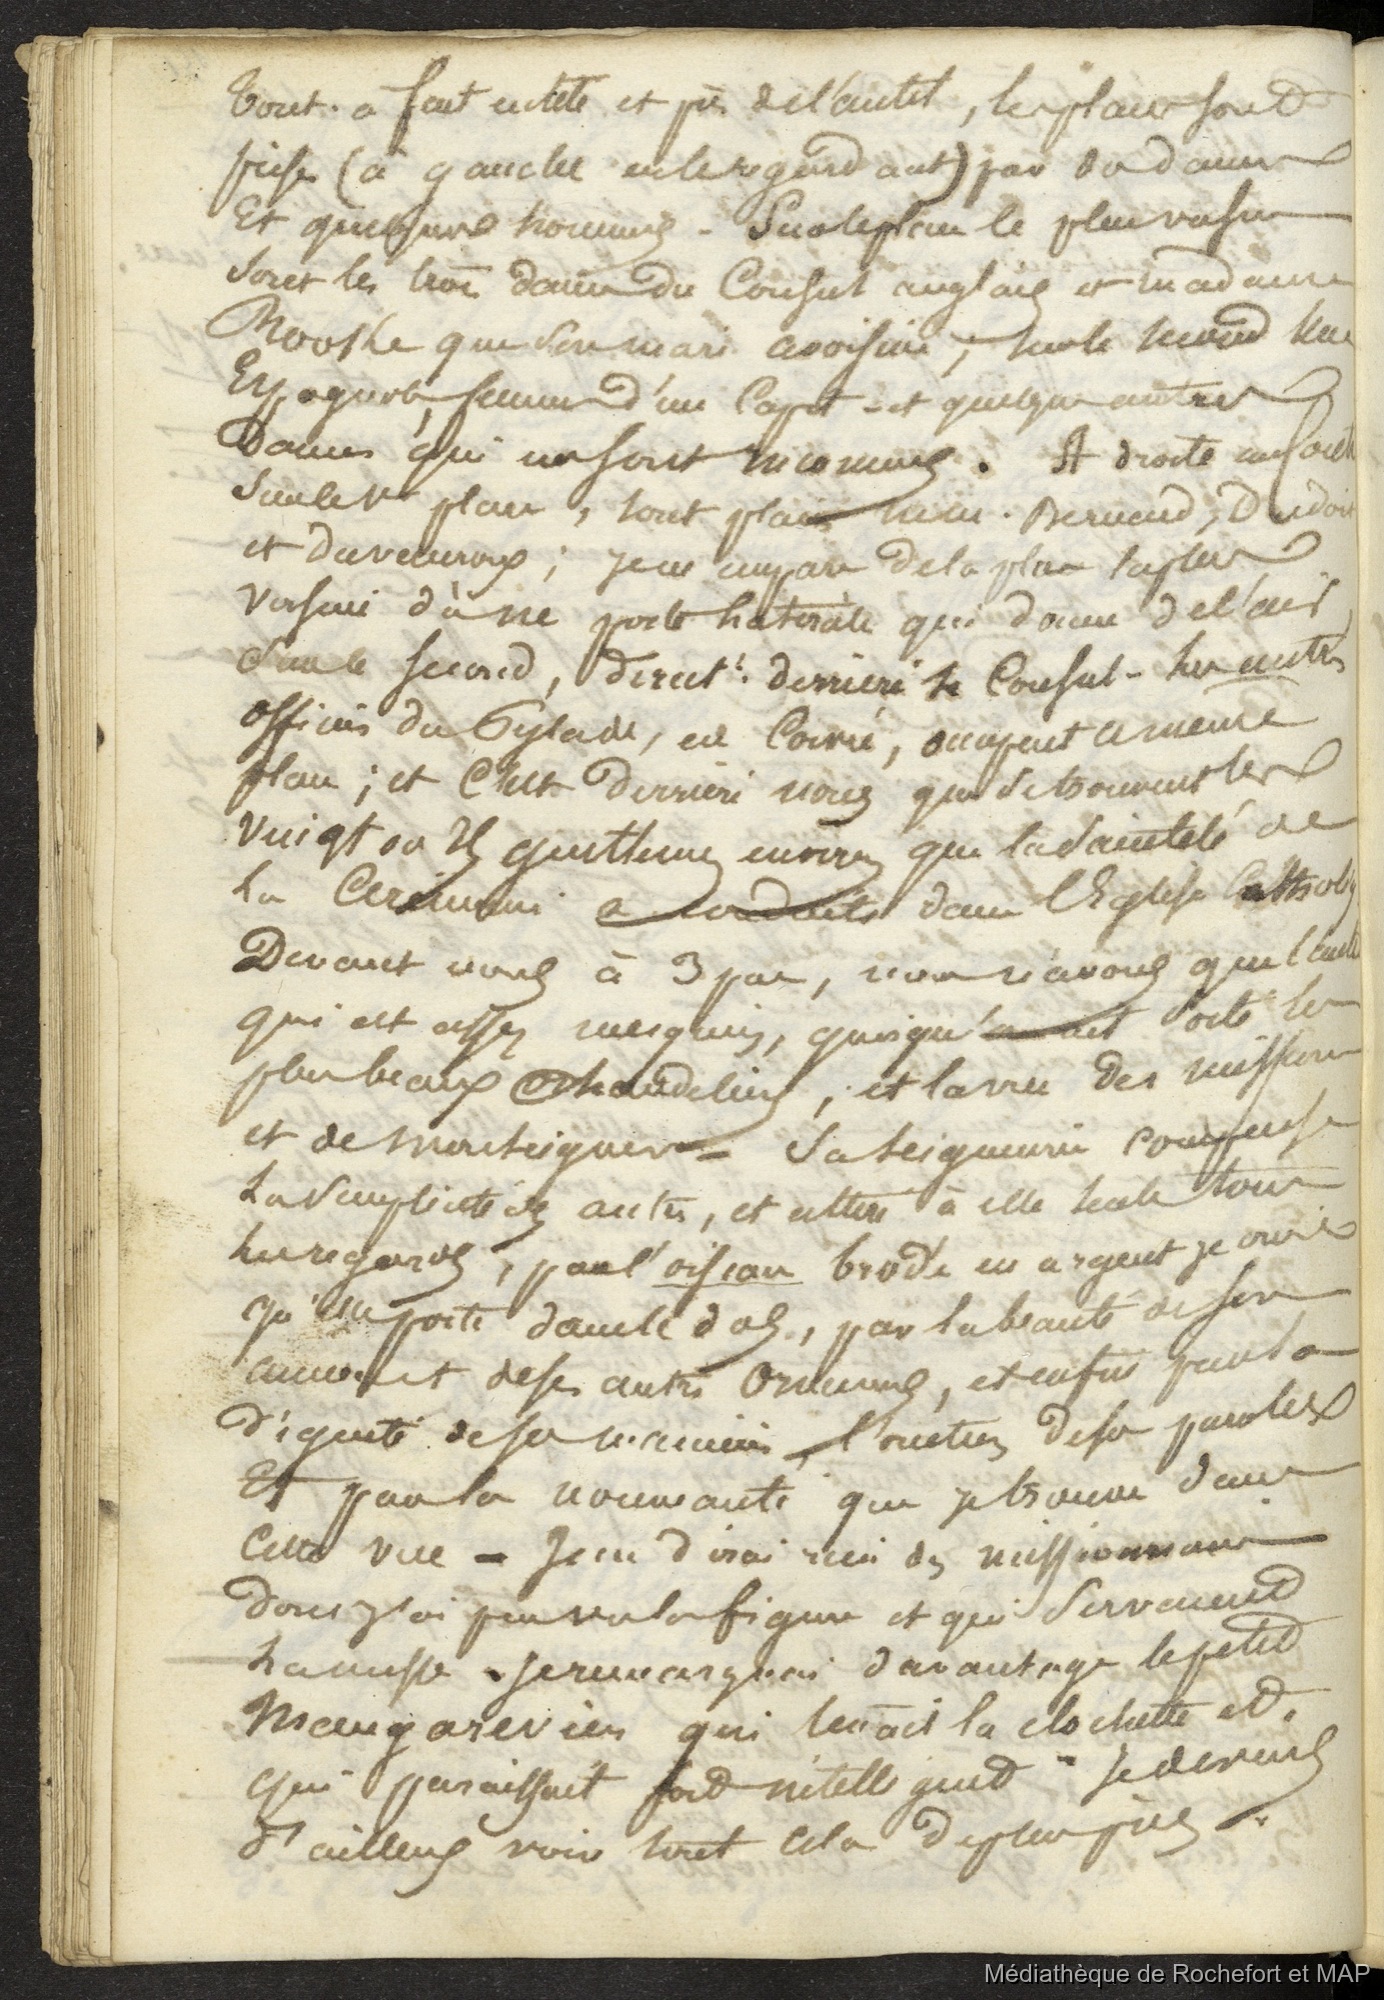 Tout-à fait entête et près de l'autel, les places sont
prises (à gauche en le regardant) par des dames
Et quelques hommes - Sur le plan le plus voisin
Sont les trois dames du Consul anglais et madame
que son mari avoisine ; sur le second une
Espagnole, femme d'un Capit - et quelques autres
Dames qui me sont inconnues. A droite au
Sur le 1er plan, sont placés mm. Bernaud, Dudoit
et ; je m'empare de la place la plus
voisine d'une porte latérale qui donne de l'air
Sur le second, direct.t derrière le Consul - les autres
officiers du Pylade, en Corvée, occupent ce même
plan ; et C'est derrière nous que se trouvent les
vingt ou gentlemen environ que la Sainteté de
La Cérémonie a conduits dans l'Eglise Catholiq
Devant nous à 3 pas, nous n'avons que l'autel
qui est assez mesquin, quoiqu' porte de
plus beaux chandeliers, et la vue des missionn
et de Monseigneur - Sa seigneurie compense
La Simplicité des autres, et attire à elle seule tous
les regards, par l'oiseau brodé en argent je crois
qu'elle porte dans le dos, par la beauté de son
anneau et de ses autres Ornemens, et enfin par la
dignité de ses manières, l'onction de sa parole
Et par la nouveauté que je trouve dans
Cette vue - Je ne dirai rien des missionnaires
dont j'ai peu vu la figure et qui Servaient
La messe - Je remarquai davantage le petit
Mangarevien qui tenait la clochette et
qui paraissait fort intelligent - Je devais
d'ailleurs voir tout cela de plus près -